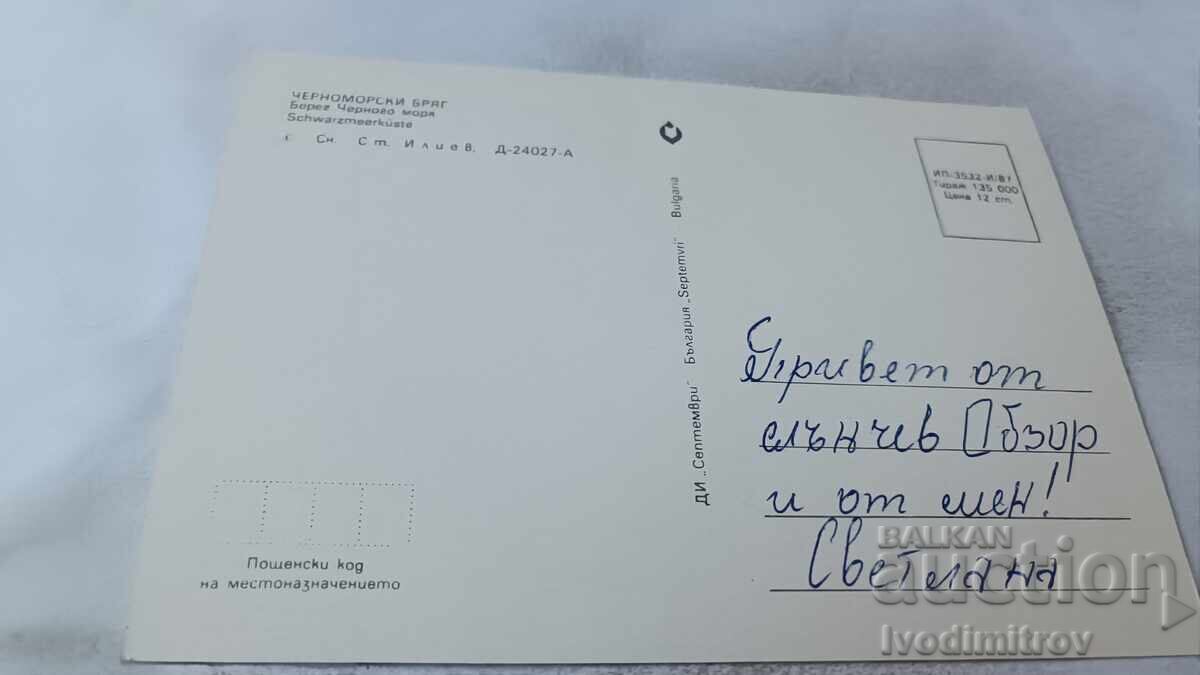 ЧЕРНОМОРСКИ БРЯГ
Берег Черного моря
Schwarzmeerküste
Сн. Ст. Илиев. Д-24027-А
ДИ „Септември" България „Septemvri" Bulgaria
ИП-3532-И/81
Тираж 135 000
Цена 12 ст.
Привет от
слънчев Обзор
и от мен!
Светлана
Пощенски код
на местоназначението
BALKAN
auction
Ivodimitrov